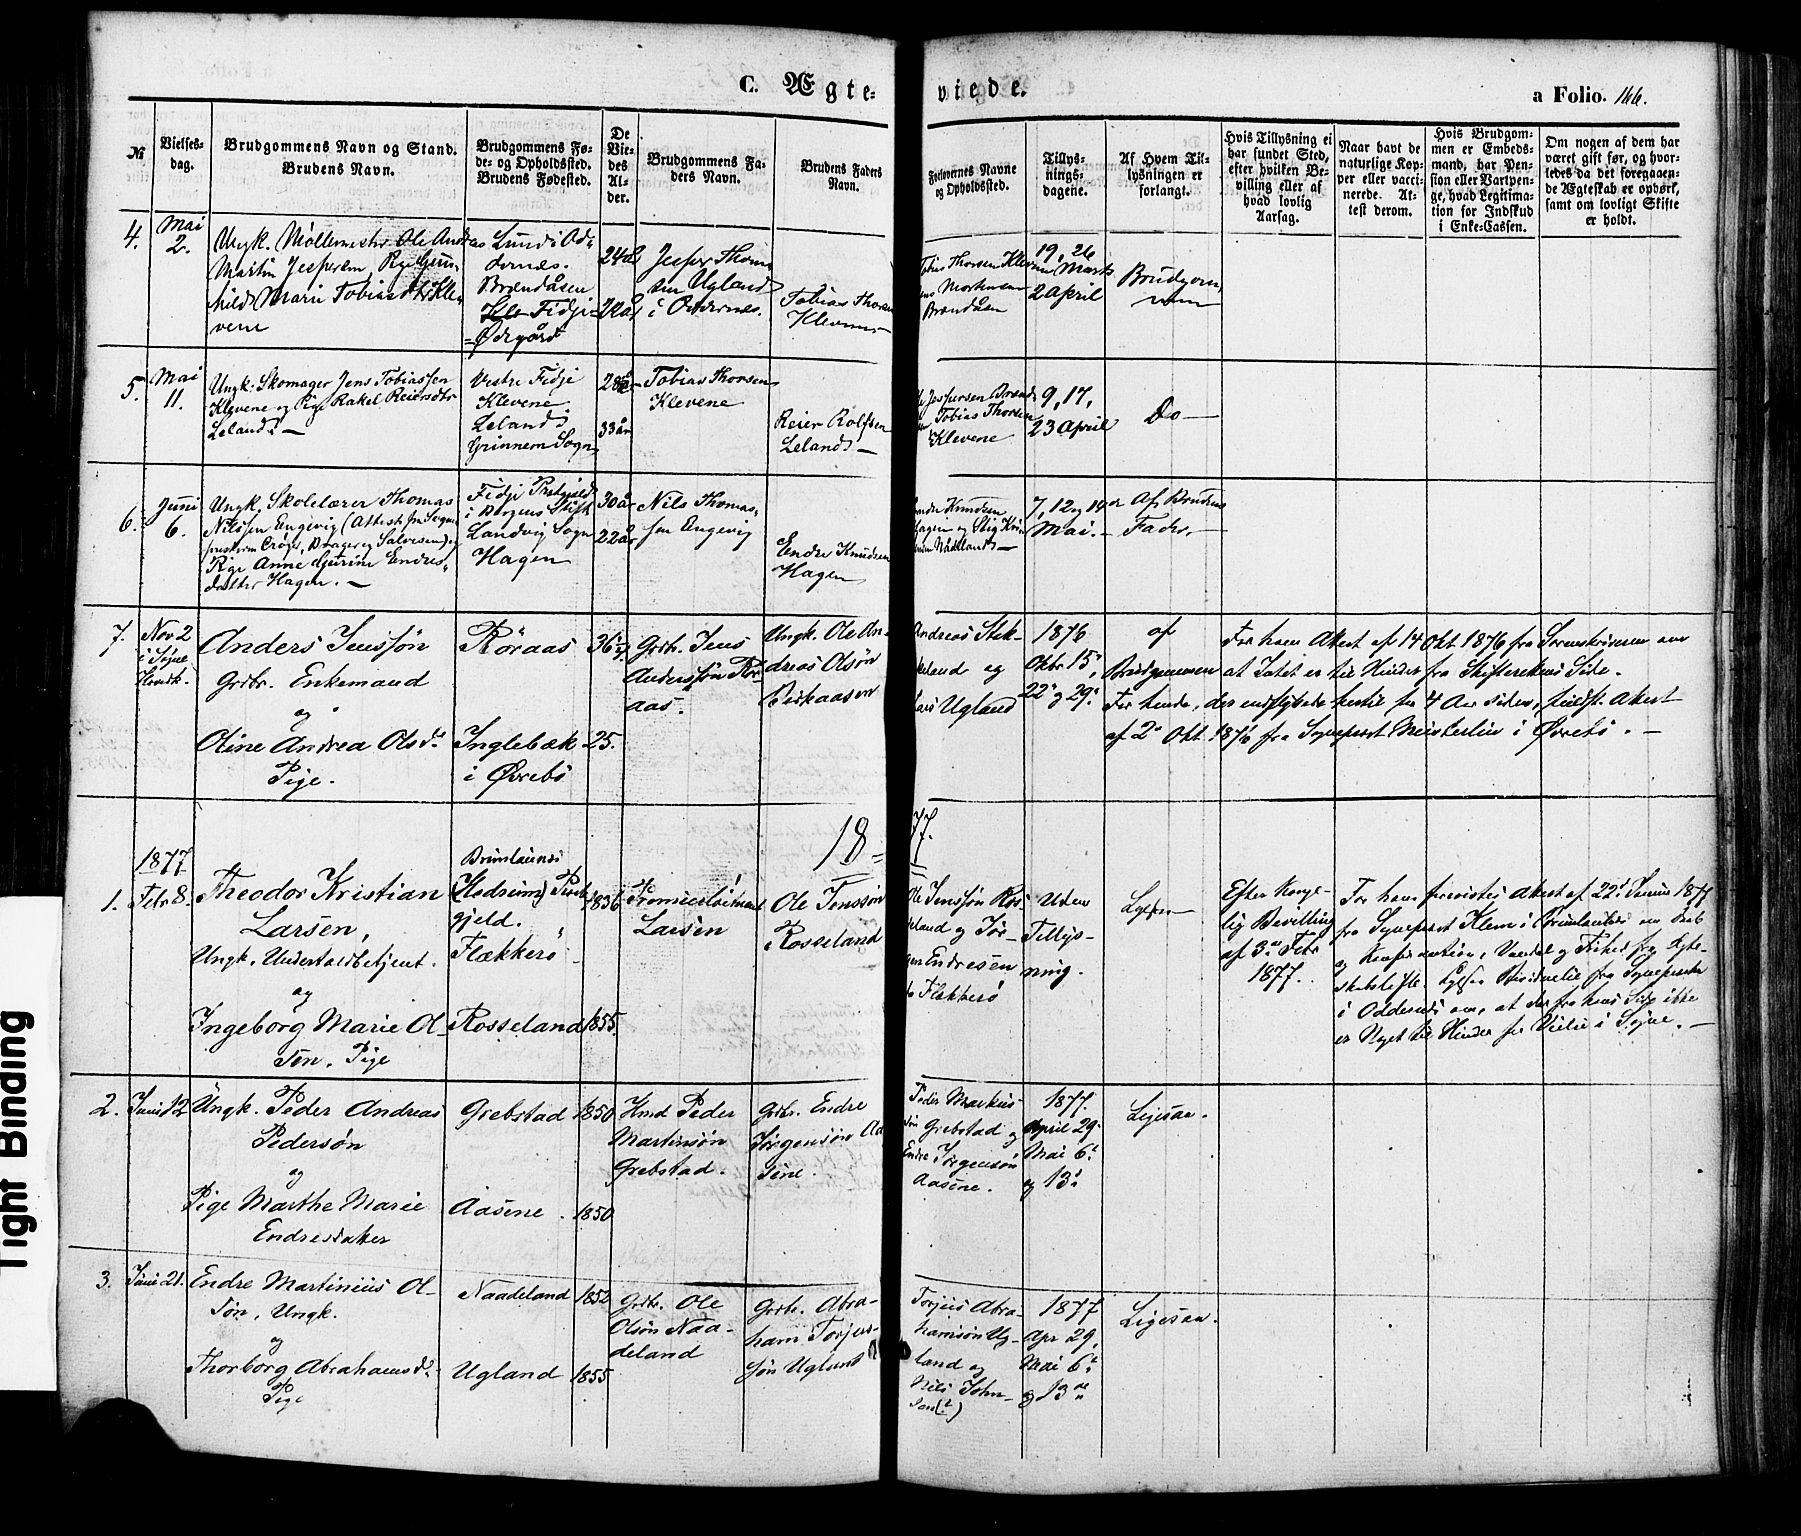 C. Ægte-
viede.
a Folio. 166.
№
Vielses-
dag.
Brudgommens Navn og Stand.
Brudens Navn.
Brudgommens Fø-
de- og Opholdssted.
Brudens Fødested.
De
Vie-
des
Al-
der.
Brudgommens Fa-
ders Navn.
Brudens Faders
Navn.
Forlovernes Navne
og Opholdssted.
Tillys-
nings-
dagene.
Af Hvem Til-
lysningen er
forlangt.
Hvis Tillysning ei
har fundet Sted,
efter hvilken Be-
villing eller af
hvad lovlig
Aarsag.
Naar havt de
naturlige Kop-
per eller vacci-
nerede. At-
test derom.
Hvis Brudgom-
men er Embeds-
mand, har Pen-
sion eller Vartpen-
ge, hvad Legitima-
tion for Indskud
i Enke-Cassen.
Om nogen af dem har
været gift før, og hvor-
ledes da det foregaaen-
de Ægteskab er ophørt,
samt om lovligt Skifte
er holdt.
4.
Mai
2.
Ungk. Møllemester Ole Andreas
Martin Jespersen, Pige Gun-
hild Marie Tobiasdtr Kle-
vene
Lund i Od-
dernes.
Brøndåsen
Fidje
Ødegård
24 år
22 år
Jesper Thom-
sen Ugland
i Oddernes.
Tobias Thorsen
Klevene
Tobias Thorsen Klevene
Mortensen
Brøndåsen
19, 26
Marts
2 April
Brudgom-
men
5.
Mai
11.
Ungk. Skomager Jens Tobiassen
Klevene og Pige Rakel Reiersdtr
Leland. —
Vestre Fidje
Klevene
Leland
Sogn
28 år
33 år
Tobias Thorsen
Klevene
Reier Rolfsen
Leland —
Jespersen Brønd
Tobias Thorsen
Klevene
9, 17,
23 April
Do —
6.
Juni
6.
Ungk. Skolelærer Thomas
Nilssen Engevig (Attest fra Sogne
Salvesen) og
Pige Anne Gurine Endres-
datter Hagen. —
Fidje Prstgjeld
i Bergens Stift
Landvig Sogn
Hagen
30 år
22 år
Nils Thomas-
sen Engevig
Endre Knudsen
Hagen
Endre Knudsen
Hagen og Stig Knu-
Nådeland —
7, 12 og 14 de
Mai. —
Af Brudens
Fader. —
7.
Nov 2
i Søgne
Hovedk.
Anders Jenssøn
Grdbr. Enkemand
og
Oline Andrea Olsdr
Pige.
Röraas
Inglebæk
i Øvrebö
36 ½
25.
Grdbr. Jens
Anderssøn Rör-
aas.
Ungk. Ole An-
dreas Olsön
Eikaasen
Andreas Stok-
keland og
Lars Ugland
1876
Oktbr 15,
22 og 29.
af
Brudgommen
For ham Attest af 14 Okt 1876 fra Sorenskriveren om
at Intet er til Hinder fra Skifterettens Side.
For hende, der indflyttede hertil for 4 Aar siden, Attest
af 2 Okt 1876 fra Sogneprest i Øvrebö. —
1877.
1877
1.
Febr 8.
Theodor Kristian
Larsen,
Ungk. Undertoldbetjent.
og
Ingeborg Marie Ol-
sen. Pige
Brunlaunæs
(Hedrum) Præst-
gjeld.
Flækkerö
Rosseland
1836
1855.
Premierløitnant
Larsen
Ole Jenssøn
Rosseland
Ole Jenssøn Ros-
seland og Jör-
gen Endresen
Flækkerö
Uden
Tillys-
ning.
Efter Konge-
lig Bevilling
af 3 Febr
1877.
For ham forevistes Attest af 22 Januar 1877
fra Sogneprest Klem i Brunlaunæs om Daab
og Konfirmation, Vandel og Frihed for Ægte-
skabslöfte.
i Oddernes om, at der fra hans Side ikke
er Noget til Hinder for Vielse i Søgne. —
2.
Juni 12
Ungk. Peder Andreas
Pedersøn
og
Pige Marthe Marie
Endresdatter
Grebstad
Aasene.
1850
1850
Hmd Peder
Martinsön
Grebstad.
Grdbr. Endre
Jørgensön Aa-
sene.
Peder Markus-
sön Grebstad og
Endre Jørgensön
Aasene.
1877.
April 29.
Mai 6.
og 13.
Ligesaa.
3.
Juni 21.
Endre Martinius Ol-
søn, Ungk.
og
Thorborg Abrahamsdr
Pige
Naadeland
Ugland
1852
1855
Grdbr. Ole
Olsøn Naa-
deland
Grdbr. Abra-
ham Torjus-
søn Ugland
Torjus Abra-
hamsön Ug-
land og
Nils John-
sen (?)
1877
Apr 29,
Mai 6.
og 13 de
Ligesaa.
Tight Binding